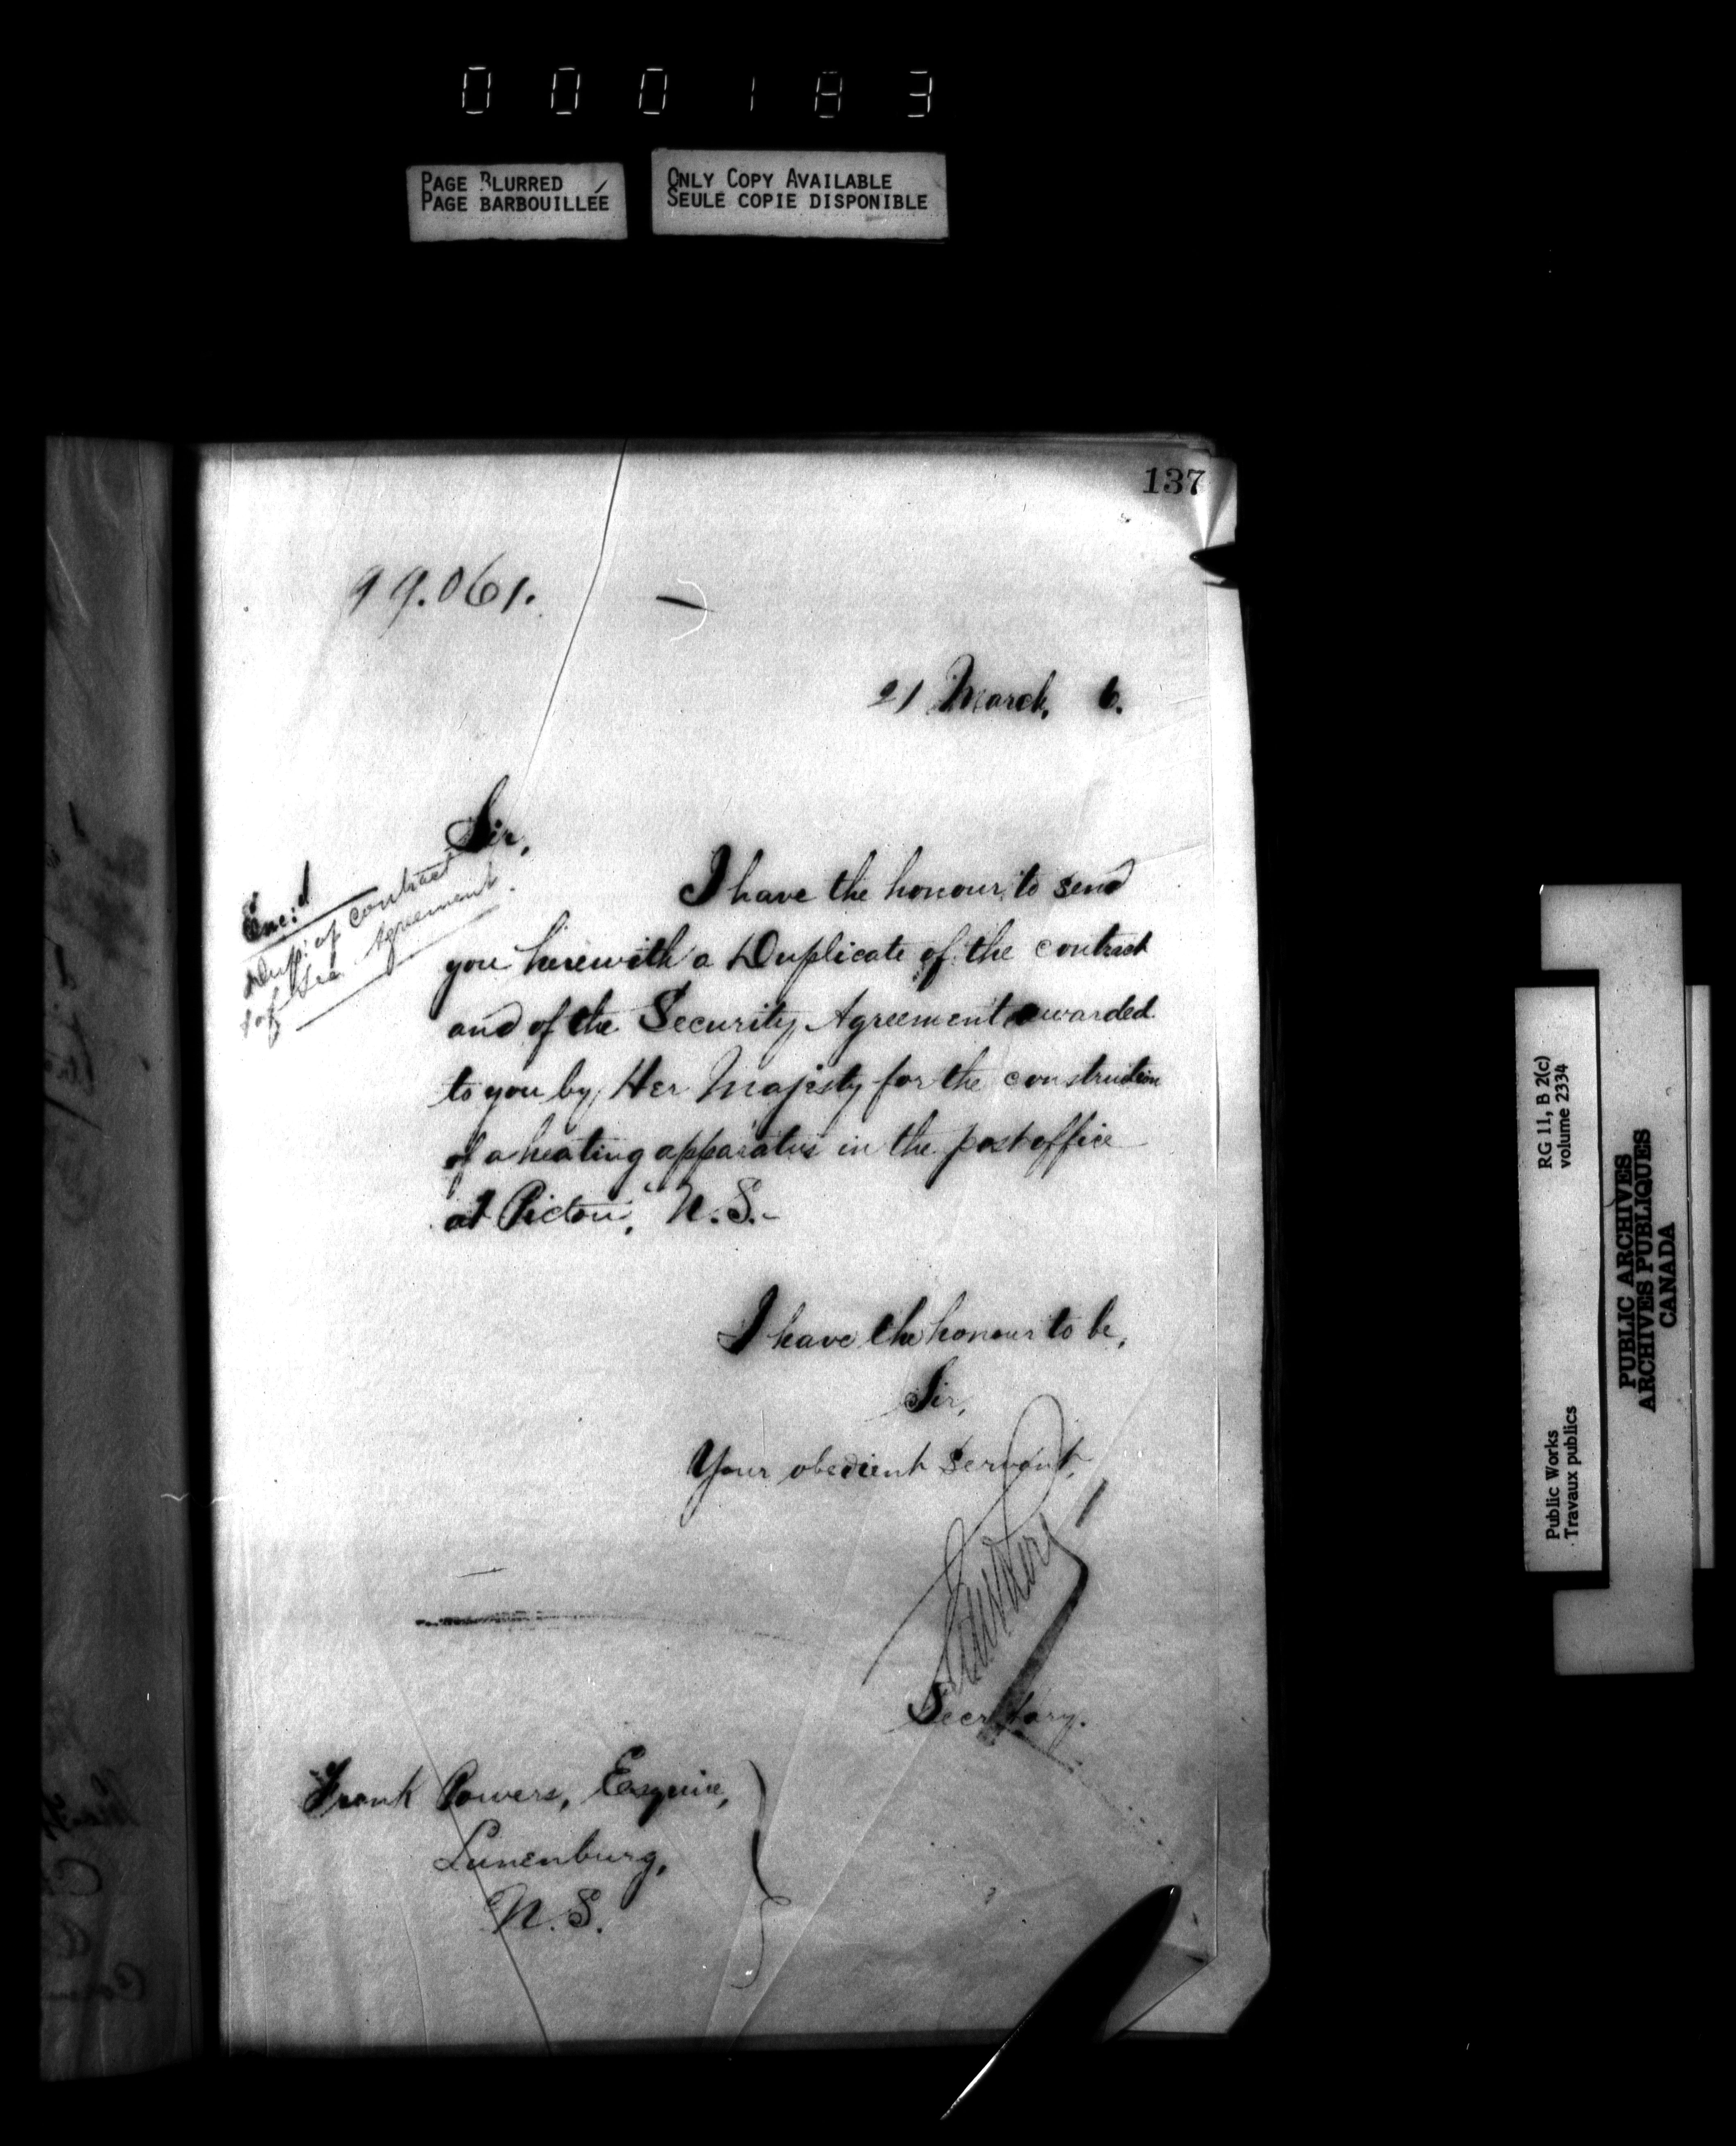 000183
PAGE BLURRED
PAGE BARBOUILLÉE
ONLY COPY AVAILABLE
SEULE COPIE DISPONIBLE
137
99.061.
21 March, 6.
Sir,
Enc:d
Dupl: of contract
& of Sec Agreement.
I have the honour to send
you herewith a Duplicate of the contract
and of the Security Agreement awarded
to you by Her Majesty for the construction
of a heating apparatus in the post office
at Pictou, N.S.-
I have the honour to be,
Sir,
Your obedient servant,
Secretary.
Frank Powers, Esquire,
Lunenburg,
N.S.
RG 11, B 2(c)
volume 2334
Public Works
Travaux publics
PUBLIC ARCHIVES
ARCHIVES PUBLIQUES
CANADA